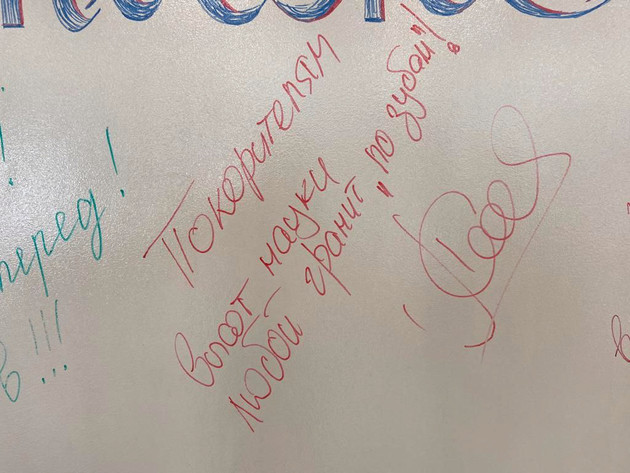 Покорителям
высот науки
любой гранит „по зубам"!
перед!
в!!!